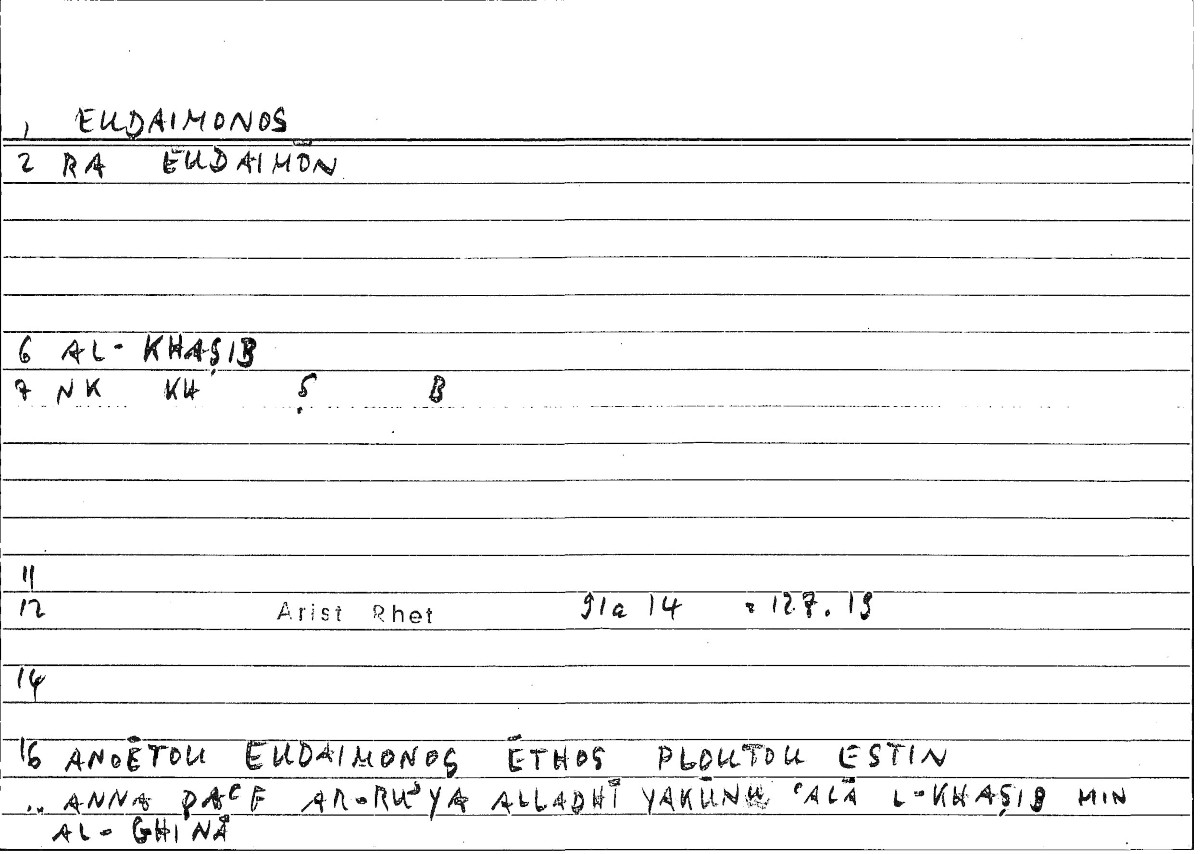 1 EUDAIMONOS
2 RA EUDAIMŌN
6 AL- KHAṢIB
7 NK KH Ṣ B
11
12 Arist Rhet 91a 14 = 127.19
14
16 ANOĒTOU EUDAIMONOS ĒTHOS PLOUTOU ESTIN
.. ANNA ḌAʿF AR-RUʾYA ALLADHĪ YAKŪNU ʿALĀ L-KHAṢIB MIN
AL- GHINĀ